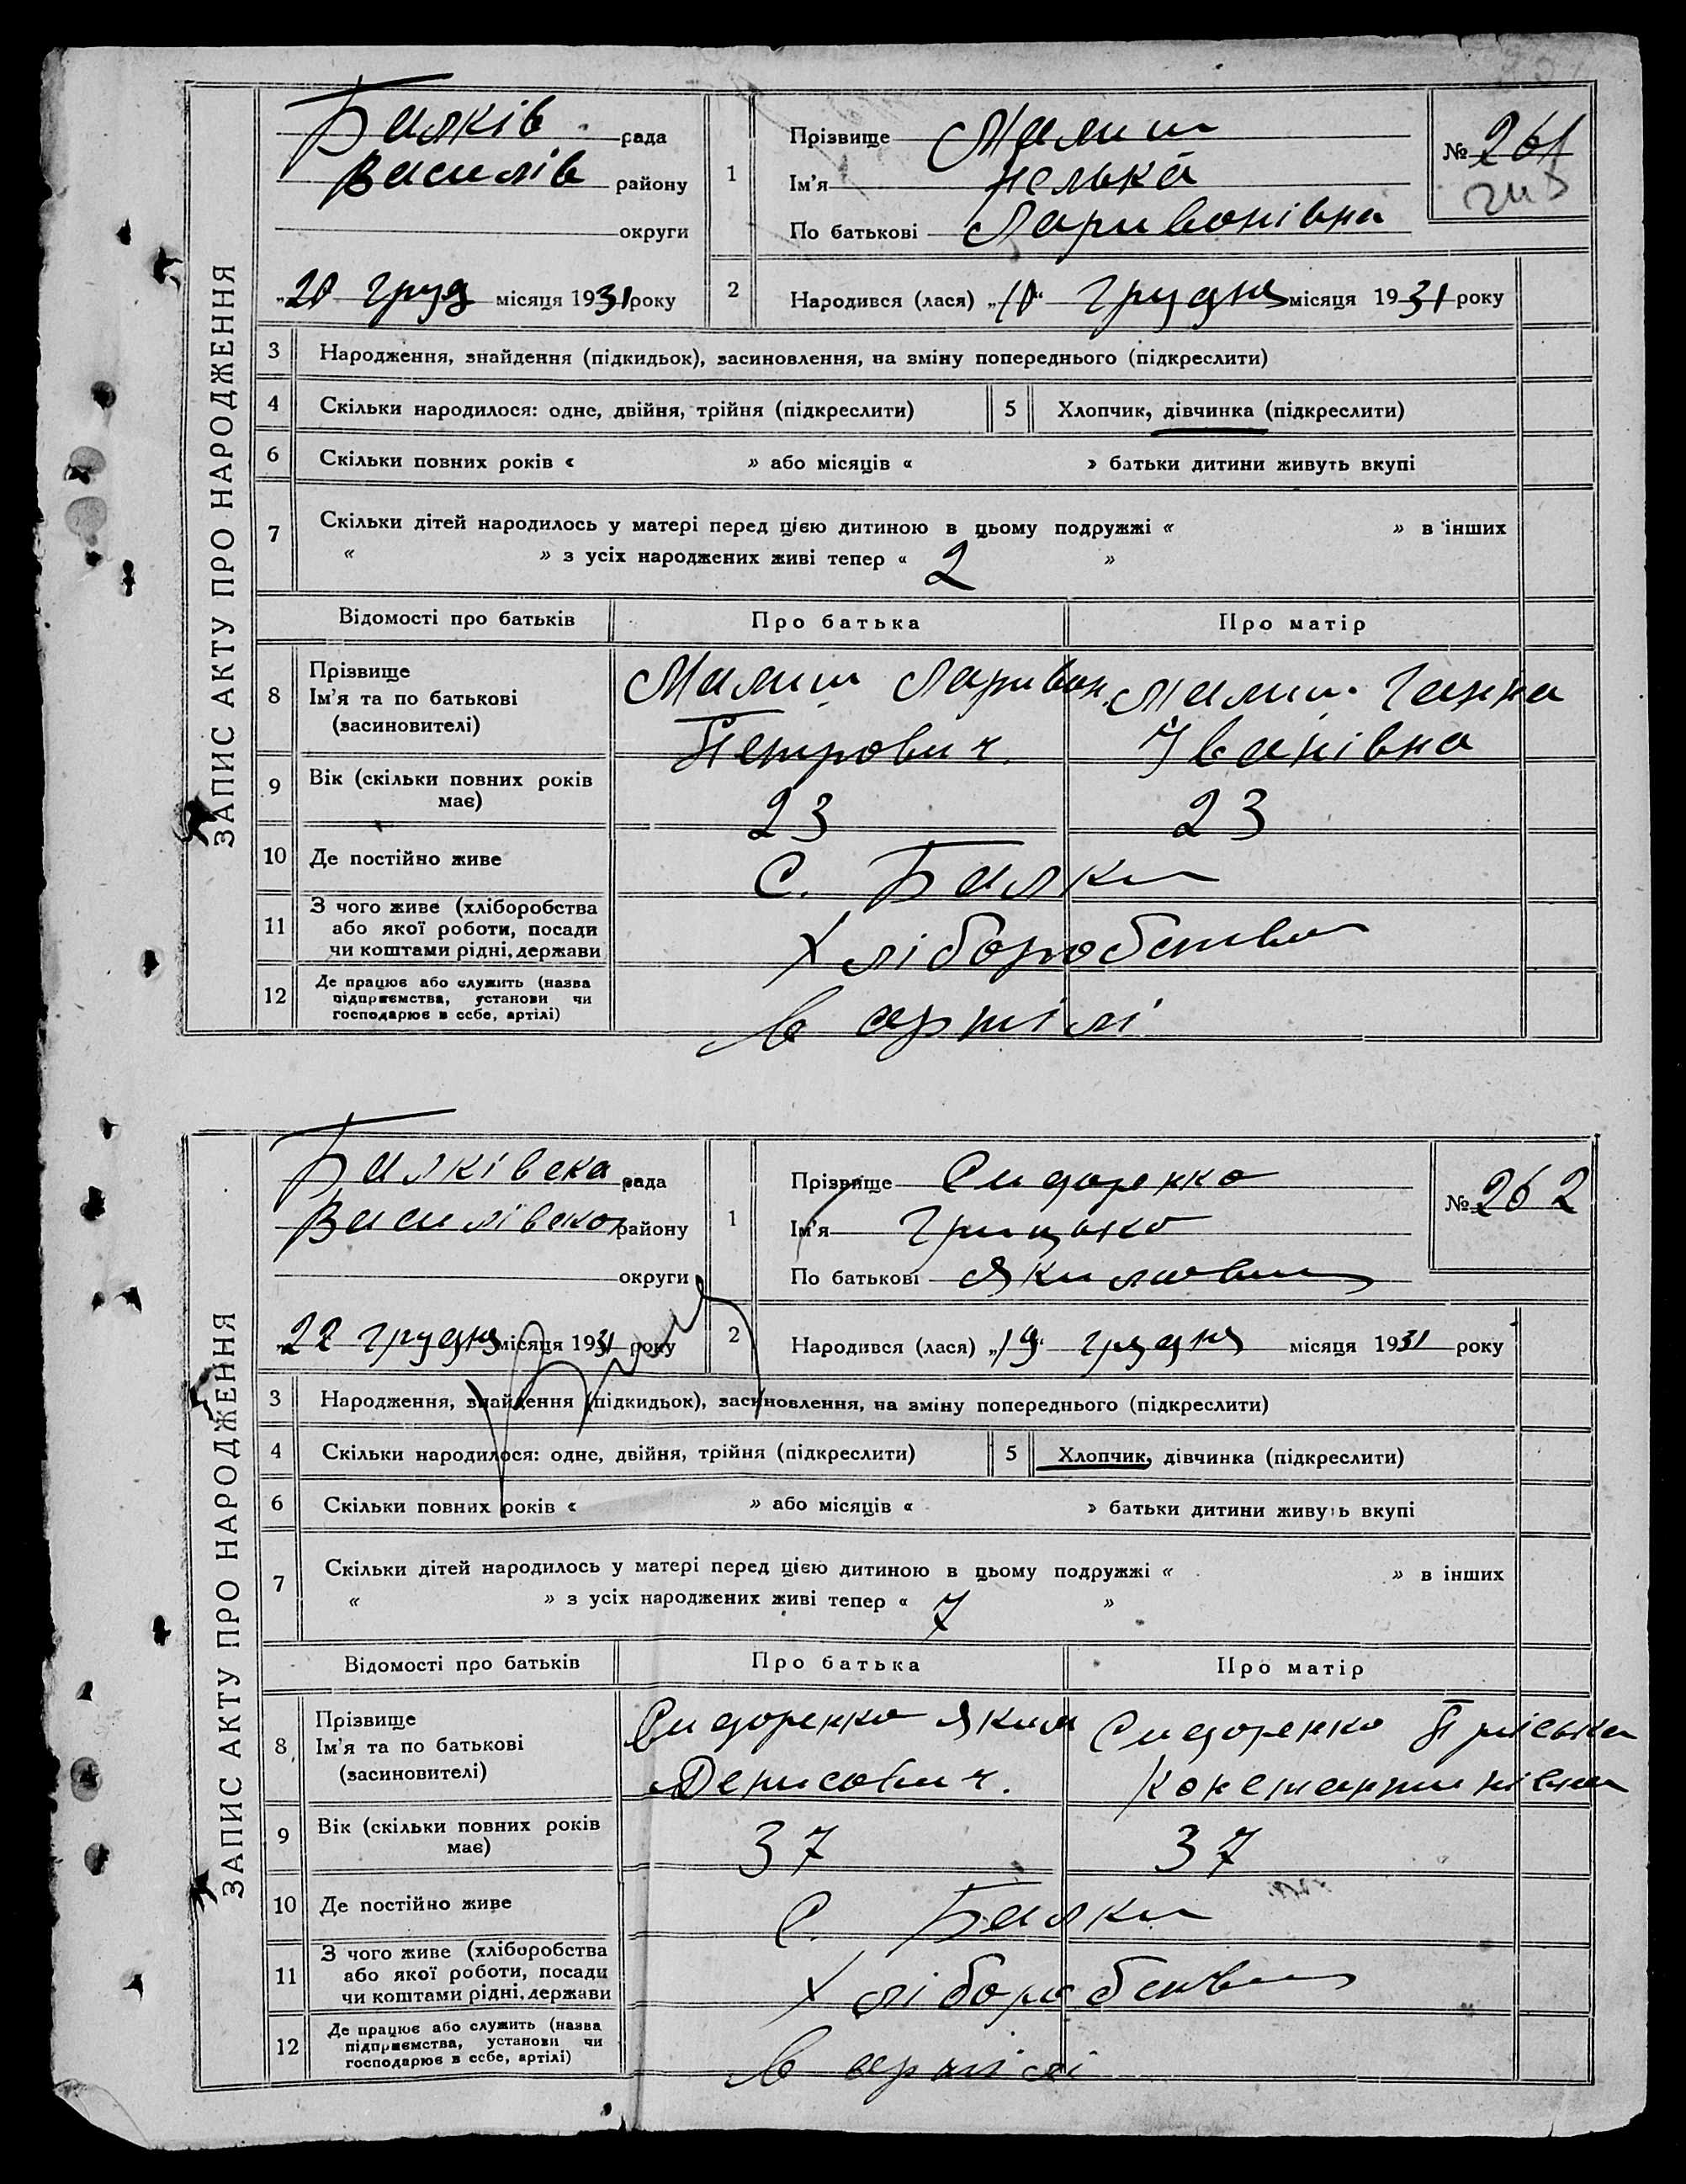 ЗАПИС АКТУ ПРО НАРОДЖЕННЯ
Балків рада
Василів району
округи
„20 груд місяця 1931 року
1
Прізвище Малиш
Ім'я
По батькові Ларивонівна
№ 261
2
Народився (лася) „10“ грудня місяця 1931 року
3 Народження, знайдення (підкидьок), засиновлення, на зміну попереднього (підкреслити)
4 Скільки народилося: одне, двійня, трійня (підкреслити)
5 Хлопчик, дівчинка (підкреслити)
6 Скільки повних років « » або місяців « » батьки дитини живуть вкупі
7 Скільки дітей народилось у матері перед цією дитиною в цьому подружжі « » в інших
« » з усіх народжених живі тепер « 2 »
Відомості про батьків Про батька Про матір
8 Прізвище
Ім'я та по батькові
(засиновителі)
Малиш Ларивон
Петрович.
Малиш Ганна
Іванівна
9 Вік (скільки повних років
має)
23 23
10 Де постійно живе С. Балки
11 З чого живе (хліборобства
або якої роботи, посади
чи коштами рідні, держави
Хліборобства
12 Де працює або служить (назва
підприємства, установи чи
господарює в себе, артілі)
в артілі
ЗАПИС АКТУ ПРО НАРОДЖЕННЯ
Балківська рада
Василівсько району
округи
„22 грудня місяця 1931 року
1
Прізвище Сидоренко
Ім'я Грицько
По батькові Якимович
№ 262
2
Народився (лася) „19“ грудня місяця 1931 року
3 Народження, знайдення (підкидьок), засиновлення, на зміну попереднього (підкреслити)
4 Скільки народилося: одне, двійня, трійня (підкреслити)
5 Хлопчик, дівчинка (підкреслити)
6 Скільки повних років « » або місяців « » батьки дитини живуть вкупі
7 Скільки дітей народилось у матері перед цією дитиною в цьому подружжі « » в інших
« » з усіх народжених живі тепер « 7 »
Відомості про батьків Про батька Про матір
8 Прізвище
Ім'я та по батькові
(засиновителі)
Сидоренко Яким
Денисович.
Сидоренко Пріська
Константинівна
9 Вік (скільки повних років
має)
37 37
10 Де постійно живе С. Балки
11 З чого живе (хліборобства
або якої роботи, посади
чи коштами рідні, держави
Хліборобства
12 Де працює або служить (назва
підприємства, установи чи
господарює в себе, артілі)
в артілі